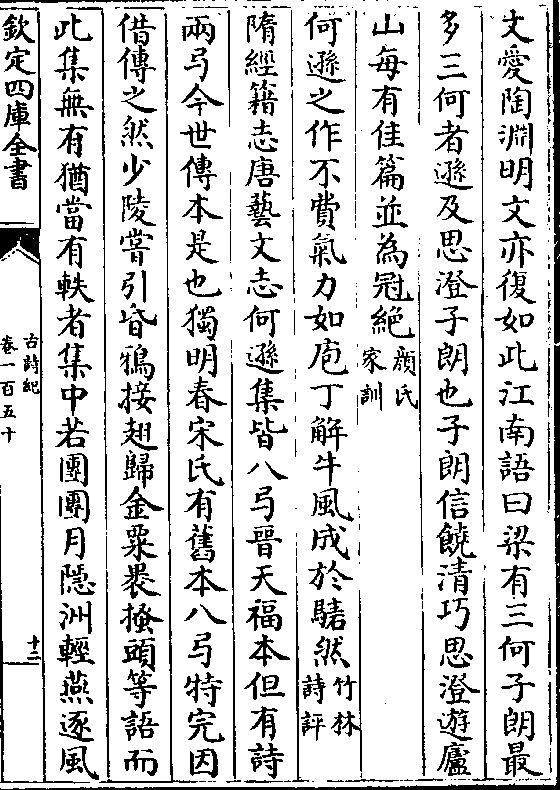 文愛陶淵明文亦復如此江南語曰梁有三何子朗最
多三何者遜及思澄子朗也子朗信饒清巧思澄遊廬
山每有佳篇並為冠絶顔氏家訓
何遜之作不費氣力如庖丁解牛風成於騞然竹林詩評
隋經籍志唐藝文志何遜集皆八弓晉天福本但有詩
兩弓今世傳本是也獨明春宋氏有舊本八弓特完因
借傳之然少陵嘗引昏鴉接翅歸金粟裹搔頭等語而
此集無有猶當有軼者集中若團團月隱洲輕燕逐風
欽定四庫全書
古詩紀
卷一百五十
十二